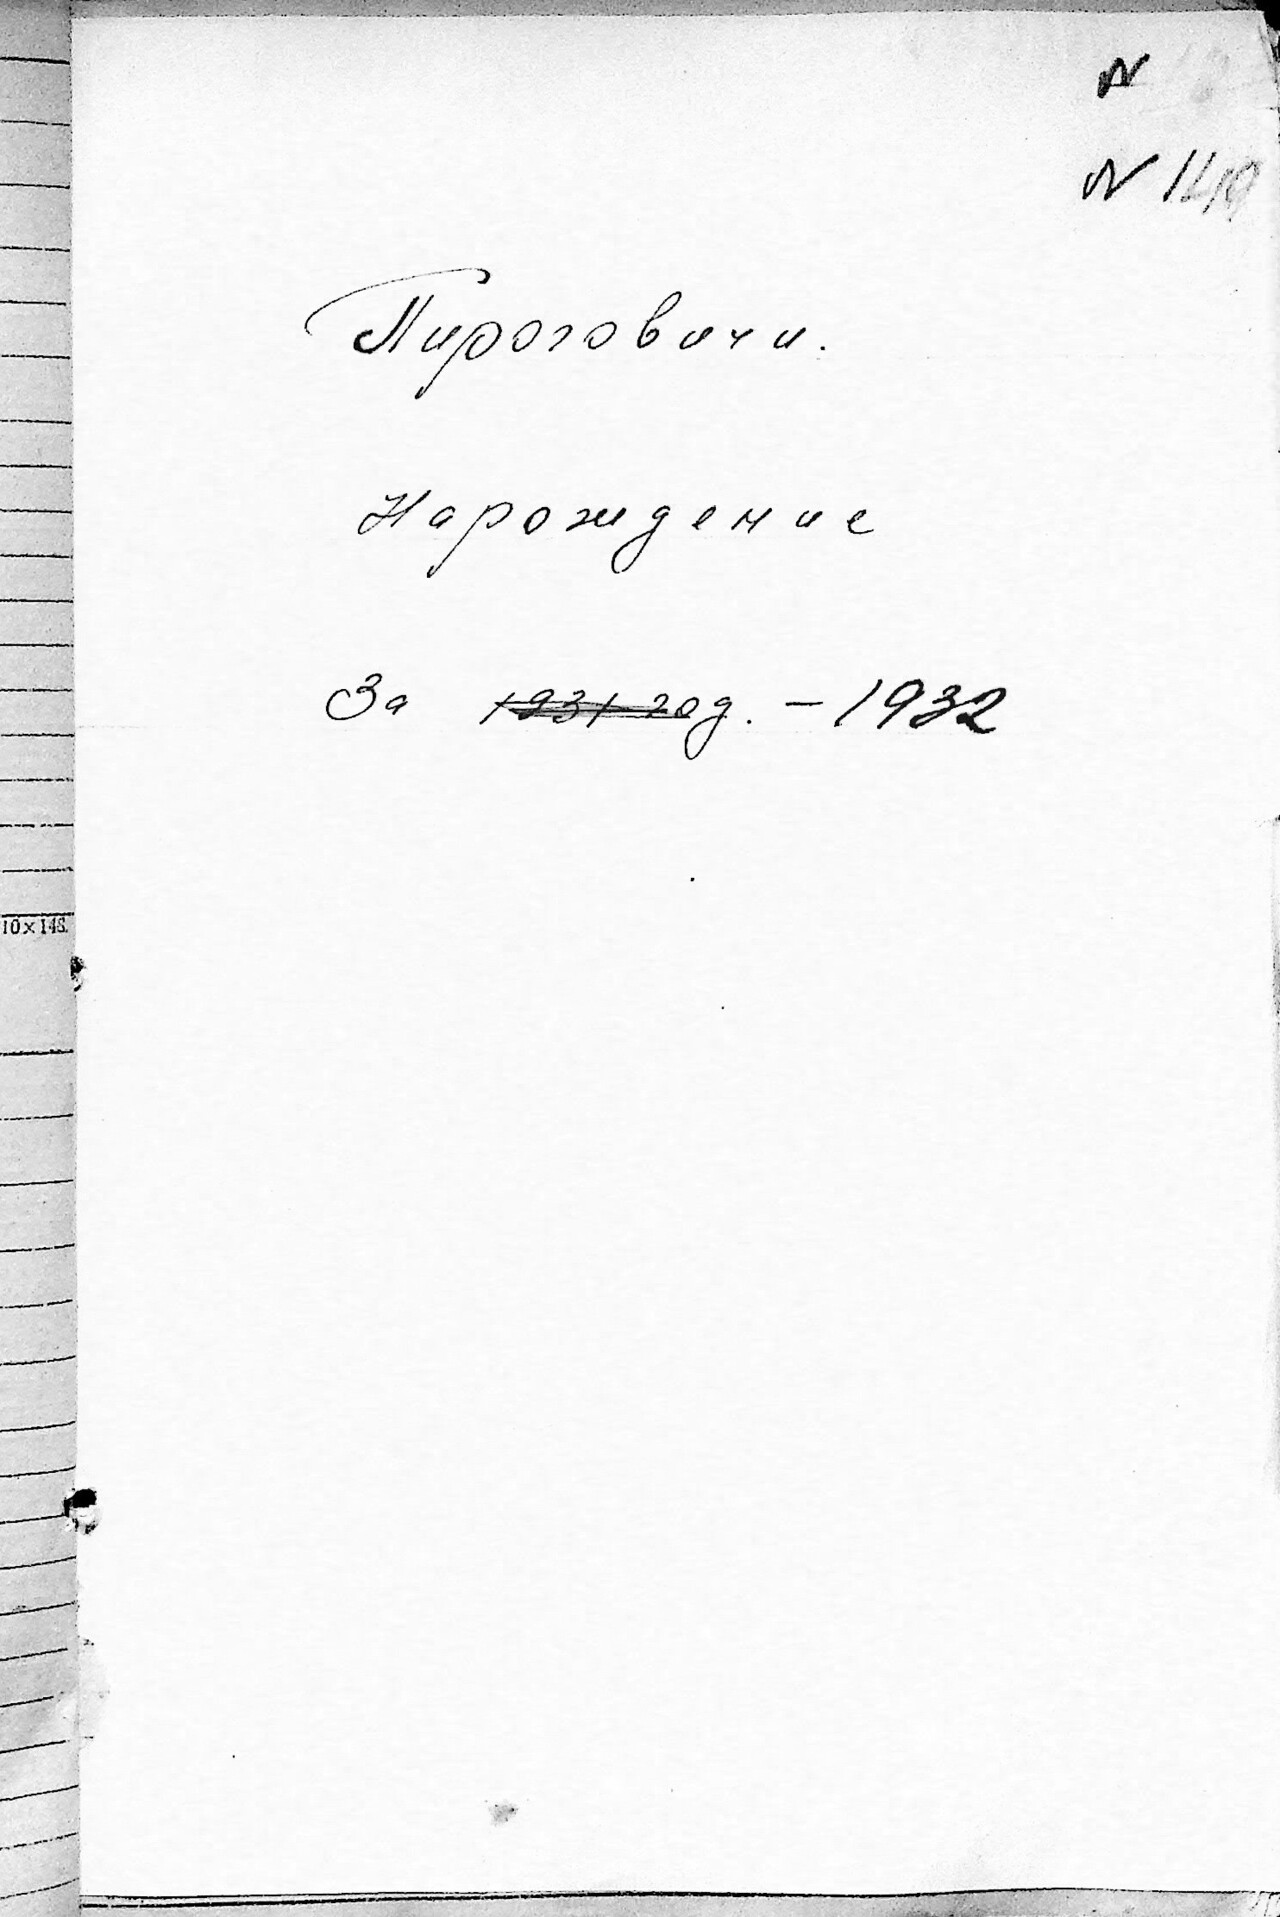 N
N 149
Пироговичи.
Нарождение
За 1931 год. – 1932
10×148.